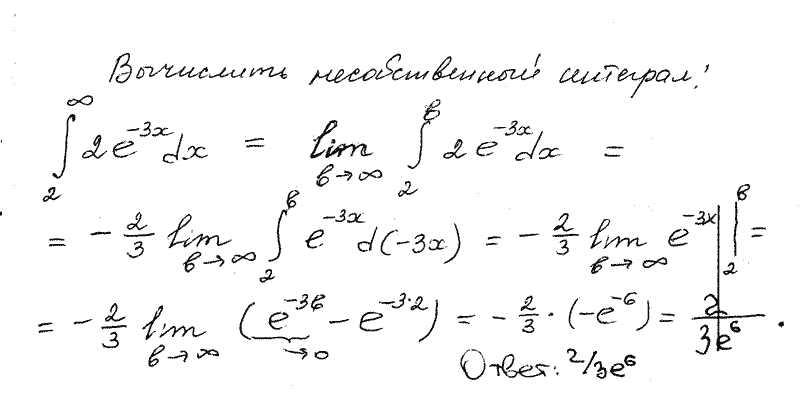 Вычислить несобственный интеграл:
∫₂^∞ 2e^(-3x) dx = lim_(в→∞) ∫₂^в 2e^(-3x) dx =
= -2/3 lim_(в→∞) ∫₂^в e^(-3x) d(-3x) = -2/3 lim_(в→∞) e^(-3x) |₂^в =
= -2/3 lim_(в→∞) (e^(-3в) - e^(-3·2)) = -2/3 · (-e^(-6)) = 2/(3e^6).
→0
Ответ: 2/3e⁶